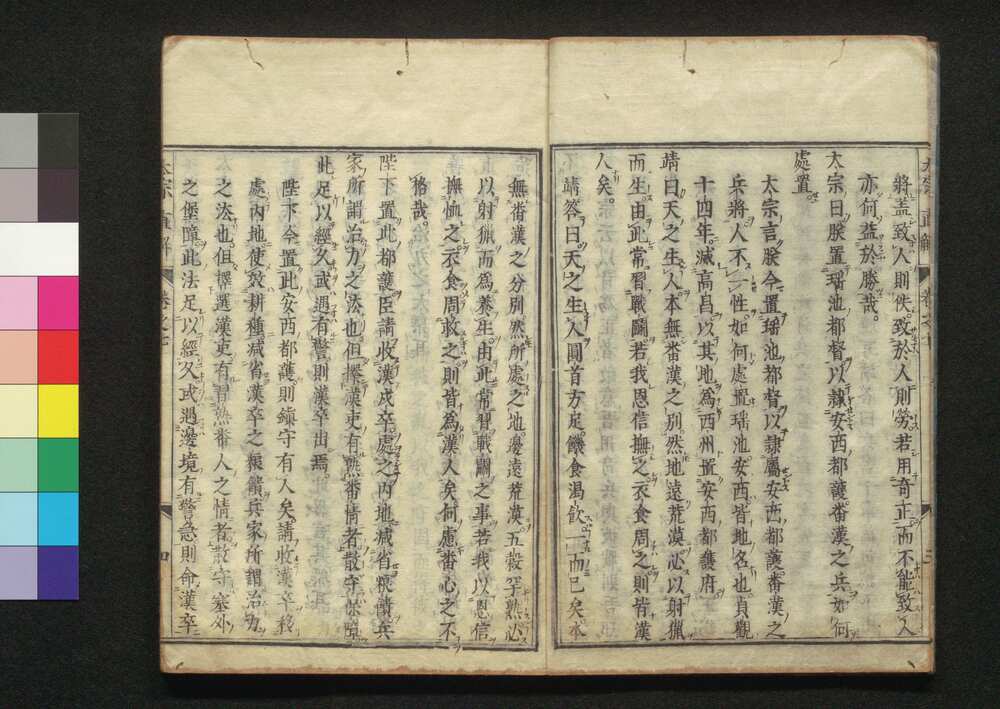 將盖致人則佚致於人則勞若用奇正而不能致人
亦何益於勝哉
太宗曰朕置瑶池都督以隷安西都護番漢之兵如何
處置
太宗言朕今置瑶池都督以隷屬安西都護番漢之
兵將人不一性如何處置瑶池安西皆地名也貞觀
十四年滅高昌以其地爲西州置安西都護府
靖曰天之生人本無番漢之別然地遠荒漠必以射獵
而生由此常習戰鬭若我恩信撫之衣食周之則皆漢
人矣
靖答曰天之生人圓首方足饑食渴飲一而已矣本
無番漢之分別然所處之地邊遠荒漠五穀罕熟必
以射獵而爲養生由此常習戰鬭之事若我以恩信
撫恤之衣食周救之則皆爲漢人矣何慮番心之不
格哉
陛下置此都護臣請收漢戍卒處之內地减省粮饋兵
家所謂治力之法也但擇漢吏有熟番情者散守堡障
此足以經久或遇有警則漢卒出焉
陛下今置此安西都護則鎮守有人矣請收漢卒移
處內地使效耕種减省漢卒之粮饋兵家所謂治力
之法也但擇選漢吏有習熟番人之情者散守塞外
之堡障此法足以經久或遇邊境有警急則命漢卒
卷之七
三
四